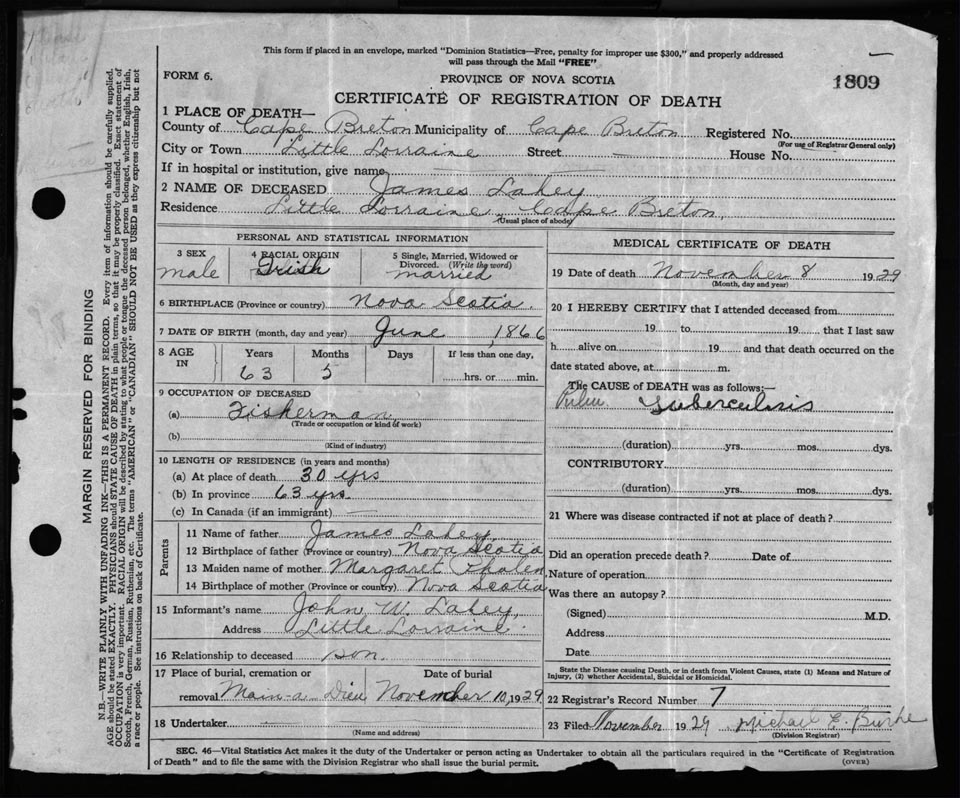 This form if placed in an envelope, marked "Dominion Statistics—Free, penalty for improper use $300," and properly addressed
will pass through the Mail "FREE"
FORM 6.
PROVINCE OF NOVA SCOTIA
1809
CERTIFICATE OF REGISTRATION OF DEATH
1 PLACE OF DEATH—
County of Cape Breton Municipality of Cape Breton Registered No.
(For use of Registrar General only)
City or Town Little Lorraine Street — House No.
If in hospital or institution, give name
2 NAME OF DECEASED James Lahey
Residence Little Lorraine, Cape Breton,
(Usual place of abode)
PERSONAL AND STATISTICAL INFORMATION
3 SEX
male
4 RACIAL ORIGIN
Irish
5 Single, Married, Widowed or
Divorced. (Write the word)
married
6 BIRTHPLACE (Province or country) Nova Scotia.
7 DATE OF BIRTH (month, day and year) June, 1866
8 AGE IN
Years Months Days If less than one day,
63 5 hrs. or min.
9 OCCUPATION OF DECEASED
(a) Fisherman
(Trade or occupation or kind of work)
(b)
(Kind of industry)
10 LENGTH OF RESIDENCE (in years and months)
(a) At place of death 30 yrs
(b) In province 63 yrs.
(c) In Canada (if an immigrant) —
Parents
11 Name of father James Lahey,
12 Birthplace of father (Province or country) Nova Scotia
13 Maiden name of mother Margaret
14 Birthplace of mother (Province or country) Nova Scotia
15 Informant's name John W. Lahey,
Address Little Lorraine.
16 Relationship to deceased son.
17 Place of burial, cremation or Date of burial
removal Main-a-Dieu November 10, 1929
18 Undertaker
(Name and address)
MEDICAL CERTIFICATE OF DEATH
19 Date of death November 8 1929
(Month, day and year)
20 I HEREBY CERTIFY that I attended deceased from
19 to 19 that I last saw
h alive on 19 and that death occurred on the
date stated above, at m.
The CAUSE of DEATH was as follows:—
Tuberculosis
(duration) yrs. mos. dys.
CONTRIBUTORY
(duration) yrs. mos. dys.
21 Where was disease contracted if not at place of death?
Did an operation precede death? Date of
Nature of operation
Was there an autopsy?
(Signed) M.D.
Address
Date
State the Disease causing Death, or in death from Violent Causes, state (1) Means and Nature of
Injury, (2) whether Accidental, Suicidal or Homicidal.
22 Registrar's Record Number 7
23 Filed November 1929 Michael E. Burke
(Division Registrar)
SEC. 46—Vital Statistics Act makes it the duty of the Undertaker or person acting as Undertaker to obtain all the particulars required in the "Certificate of Registration
of Death" and to file the same with the Division Registrar who shall issue the burial permit.
(OVER)
MARGIN RESERVED FOR BINDING
N.B.—WRITE PLAINLY WITH UNFADING INK—THIS IS A PERMANENT RECORD. Every item of information should be carefully supplied.
AGE should be stated EXACTLY. PHYSICIANS should STATE CAUSE OF DEATH in plain terms, so that it may be properly classified. Exact statement of
OCCUPATION is very important. RACIAL ORIGIN will be described by stating to what people or tongue the deceased person belonged, whether English, Irish,
Scotch, French, German, Russian, Ruthenian, etc. The terms "AMERICAN" or "CANADIAN" SHOULD NOT BE USED as they express citizenship but not
a race or people. See instructions on back of Certificate.